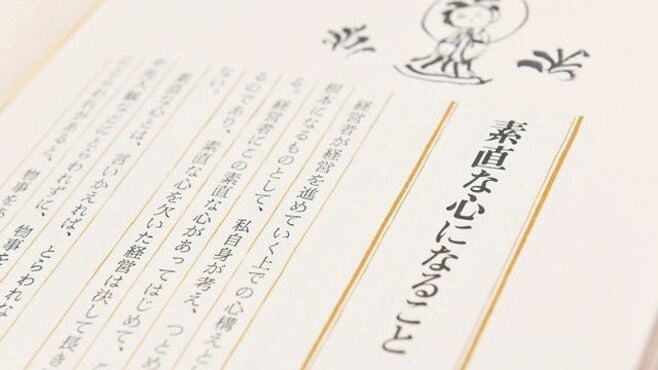 素直な心になること
経営者が経営を進めていく上での心構えと
根本になるものとして、私自身が考え、つとめ
る。経営者にこの素直な心があってはじめて、
るのであり、素直な心を欠いた経営は決して長き
ない。
素直な心とは、言いかえれば、とらわれな
や先入観などにとらわれずに、物事を
とらわれがあると、物事をあ